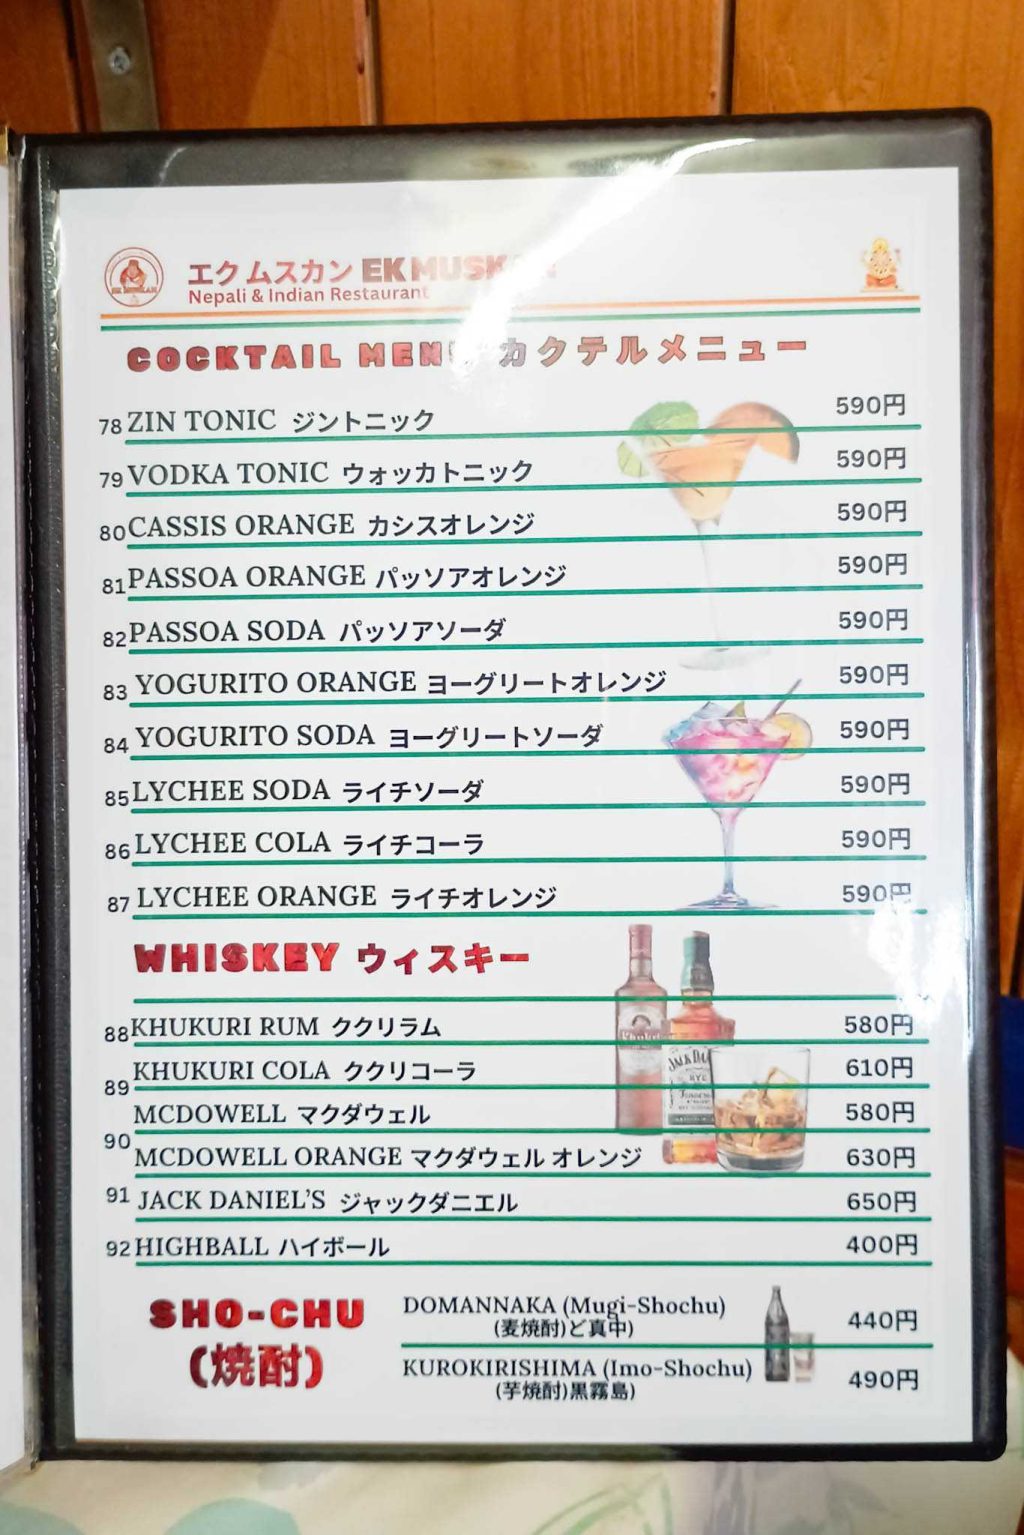 エクムスカン EK MUSKAN
Nepali & Indian Restaurant
COCKTAIL MENU カクテルメニュー
78 ZIN TONIC ジントニック 590円
79 VODKA TONIC ウォッカトニック 590円
80 CASSIS ORANGE カシスオレンジ 590円
81 PASSOA ORANGE パッソアオレンジ 590円
82 PASSOA SODA パッソアソーダ 590円
83 YOGURITO ORANGE ヨーグリートオレンジ 590円
84 YOGURITO SODA ヨーグリートソーダ 590円
85 LYCHEE SODA ライチソーダ 590円
86 LYCHEE COLA ライチコーラ 590円
87 LYCHEE ORANGE ライチオレンジ 590円
WHISKEY ウィスキー
88 KHUKURI RUM ククリラム 580円
89 KHUKURI COLA ククリコーラ 610円
MCDOWELL マクダウェル 580円
90 MCDOWELL ORANGE マクダウェル オレンジ 630円
91 JACK DANIEL'S ジャックダニエル 650円
92 HIGHBALL ハイボール 400円
SHO-CHU
(焼酎)
DOMANNAKA (Mugi-Shochu) 440円
(麦焼酎)ど真中)
KUROKIRISHIMA (Imo-Shochu) 490円
(芋焼酎)黒霧島)